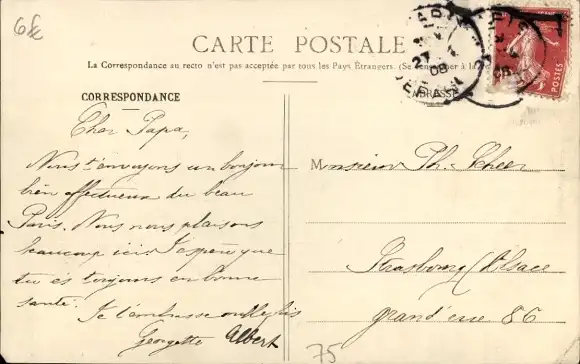 6fc
CARTE POSTALE
La Correspondance au recto n'est pas acceptée par tous les Pays Étrangers. (Se renseigner à la
CORRESPONDANCE
ADRESSE
PARIS
27
08
DEPART
POSTES
Cher Papa,
Nous t'envoyons un bonjour
bien affectueux du beau
Paris. Nous nous plaisons
beaucoup ici. J'espère que
tu es toujours en bonne
santé. Je t'embrasse mille fois
Georgette Albert
Monsieur Ph. Scheer
Strasbourg / Alsace
grand'rue 86
75